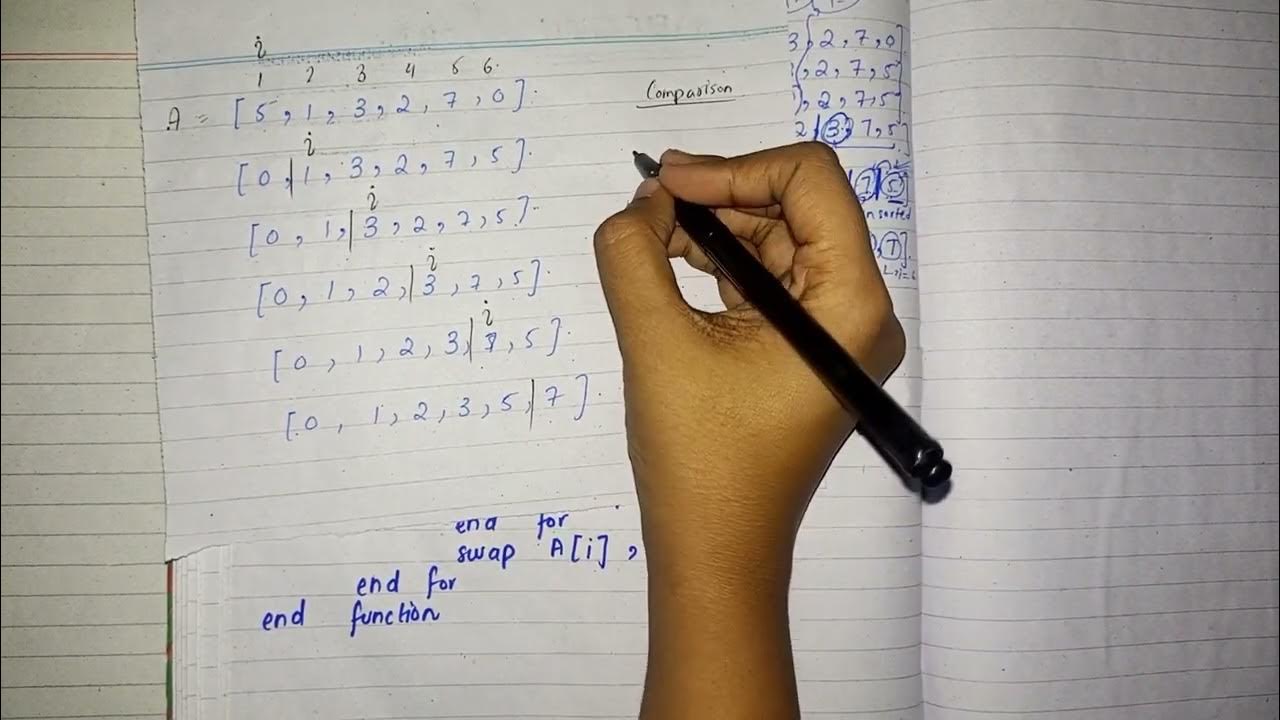 i
1 2 3 4 5 6.
A = [5, 1, 3, 2, 7, 0].
i
[0,|1, 3, 2, 7, 5].
i
[0, 1,|3, 2, 7, 5].
i
[0, 1, 2,|3, 7, 5].
i
[0, 1, 2, 3,|7, 5].
[0, 1, 2, 3, 5,|7].
Comparison
3, 2, 7, 0]
, 2, 7, 5]
, 2, 7, 5]
2, 3, 7, 5]
7 5]
sorted
, 7].
end for
swap A[i],
end for
end function